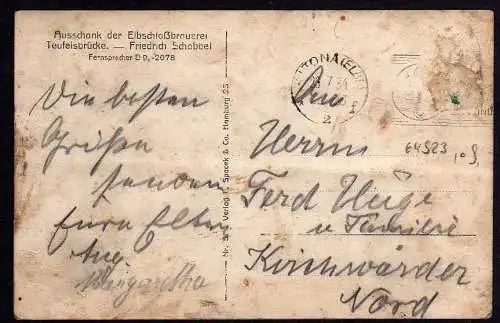 Ausschank der Elbschloßbrauerei
Teufelsbrücke. — Friedrich Schabbel
Fernsprecher D 9, -2078
Die besten
Grüße
senden
Eure Eltern
Aug.
Margaretha
Verlag Spacek & Co. Hamburg 25.
ALTONA (ELBE)
An
Herrn
64923
Ferd
u Familie
Kirchwärder
Nord